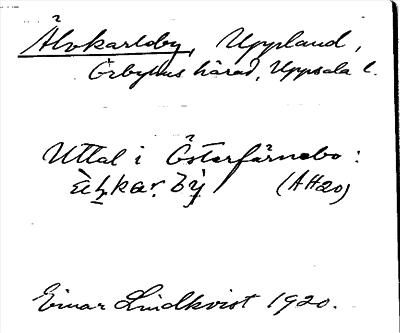 Älvkarleby, Uppland,
Örbyhus härad, Uppsala l.
Uttal i Österfärnebo:
(AH20)
Einar Lindkvist 1920.